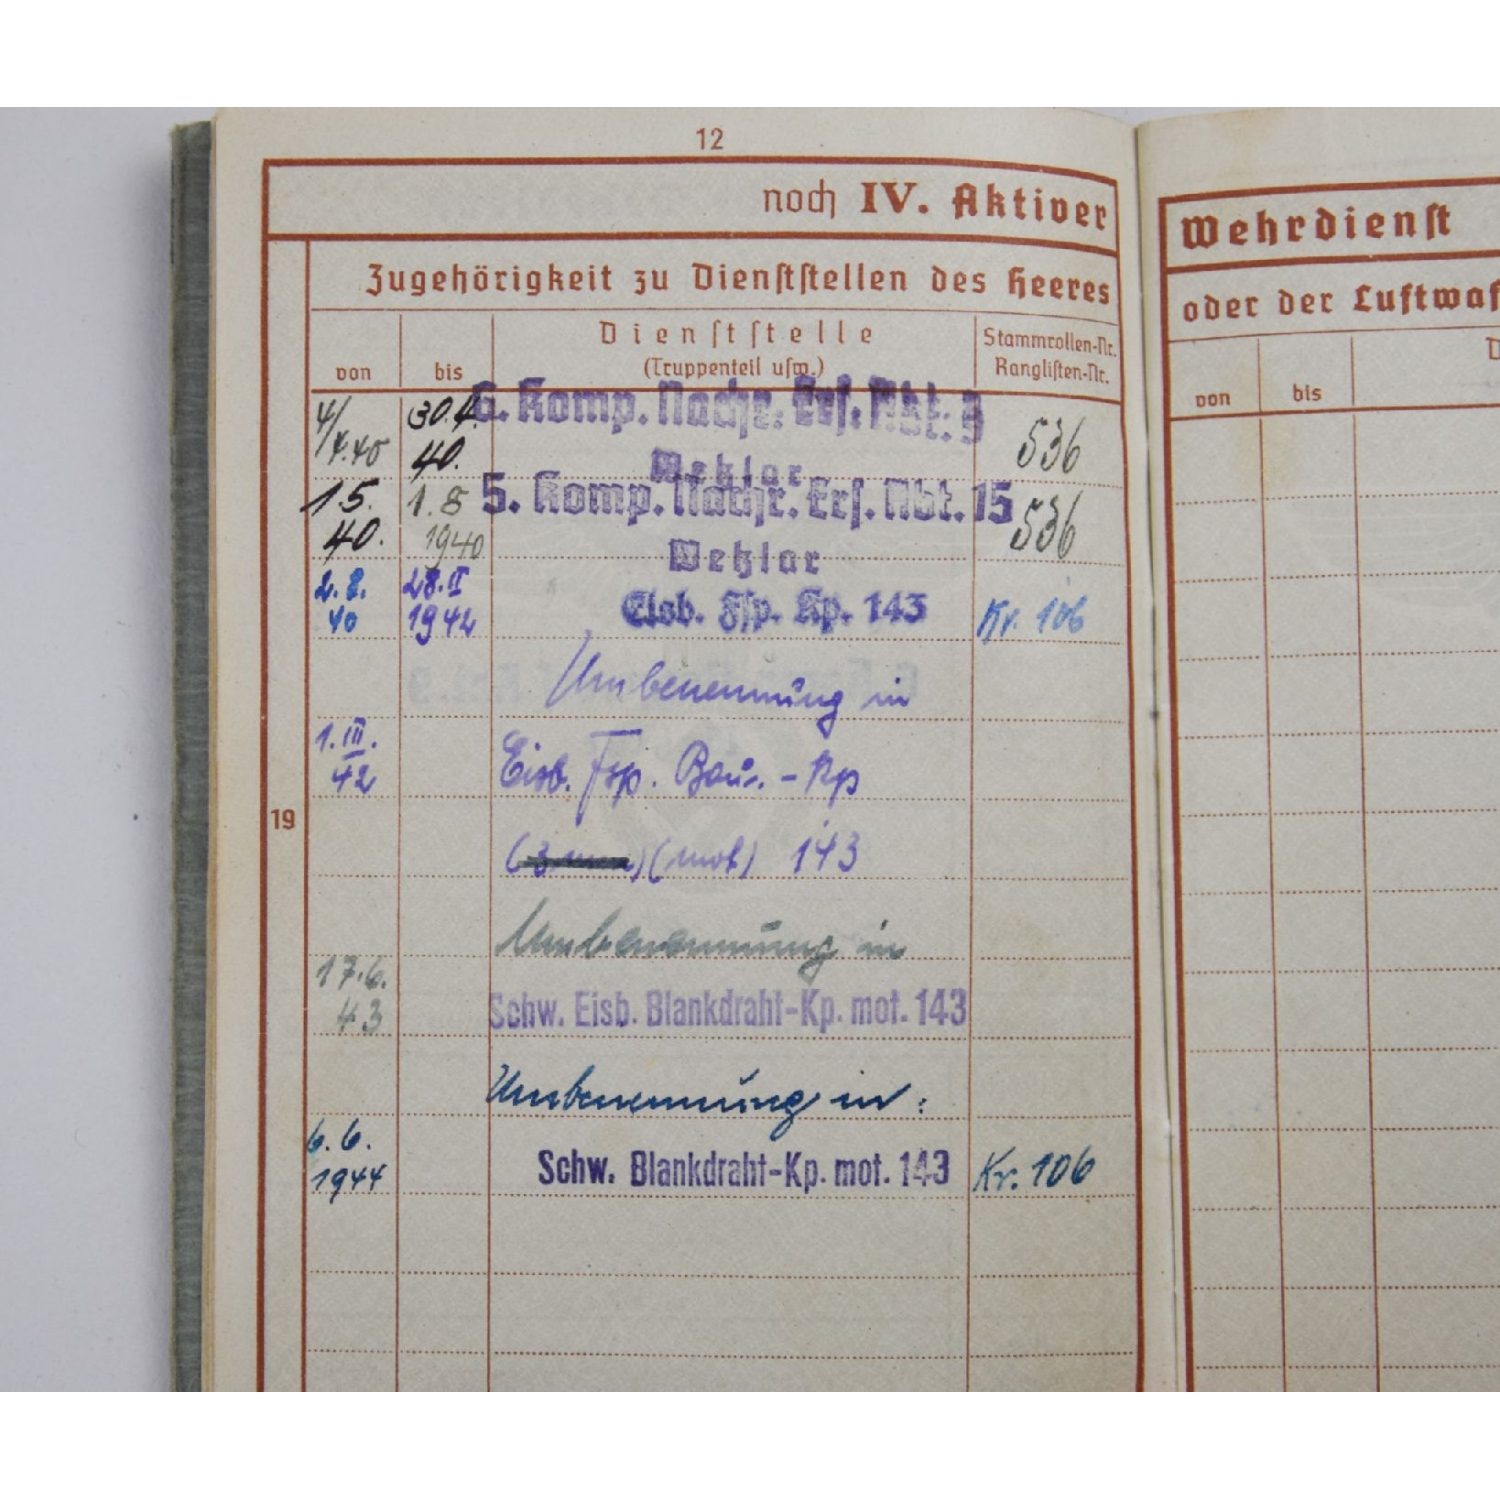 12
noch IV. Aktiver
Zugehörigkeit zu Dienststellen des Heeres
von
bis
Dienststelle
(Truppenteil usw.)
Stammrollen-Nr.
Ranglisten-Nr.
4/
4.40
30.4.
40.
6. Komp. Nachr. Ers. Abt. 9
Wetzlar
536
15.
40.
1.8
1940
5. Komp. Nachr. Ers. Abt. 15
Wetzlar
536
2.8.
40
28.II
1942
Eisb. Fsp. Kp. 143
Kr. 106
Umbenennung in
1.III.
42
Eisb. Fsp. Bau.-Kp
19
(mot) 143
Umbenennung in
17.6.
43
Schw. Eisb. Blankdraht-Kp. mot. 143
Umbenennung in:
6.6.
1944
Schw. Blankdraht-Kp. mot. 143
Kr. 106
Wehrdienst
oder der Luftwaf
von
bis
D